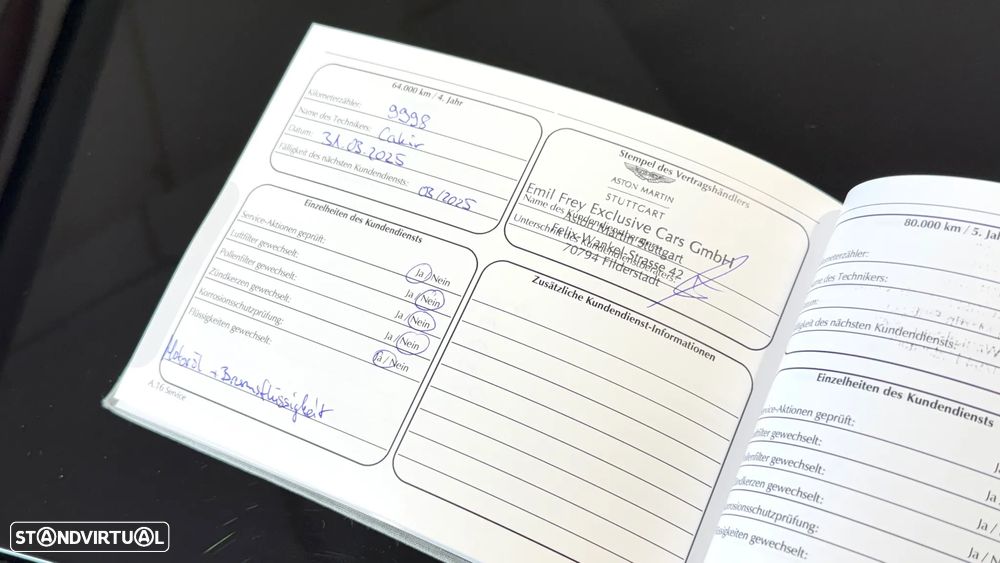 64.000 km / 4. Jahr
Kilometerzähler: 9998
Name des Technikers: Cakir
Datum: 31.03.2025
Fälligkeit des nächsten Kundendiensts: 03/2025
Einzelheiten des Kundendiensts
Service-Aktionen geprüft: Ja / Nein
Luftfilter gewechselt: Ja / Nein
Pollenfilter gewechselt: Ja / Nein
Zündkerzen gewechselt: Ja / Nein
Korrosionsschutzprüfung: Ja / Nein
Flüssigkeiten gewechselt:
Motoröl + Bremsflüssigkeit
A.16 Service
Stempel des Vertragshändlers
ASTON MARTIN
STUTTGART
Emil Frey Exclusive Cars GmbH
Name des Kundendienstberaters:
Aston Martin Stuttgart
Unterschrift des Kundendienstberaters:
Felix-Wankel-Strasse 42
70794 Filderstadt
Zusätzliche Kundendienst-Informationen
80.000 km / 5. Jah
meterzähler:
me des Technikers:
tum:
lligkeit des nächsten Kundendiensts:
Einzelheiten des Kundendiensts
vice-Aktionen geprüft:
tfilter gewechselt:
lenfilter gewechselt:
ndkerzen gewechselt:
rosionsschutzprüfung: Ja /
ssigkeiten gewechselt: Ja / N
STANDVIRTUAL